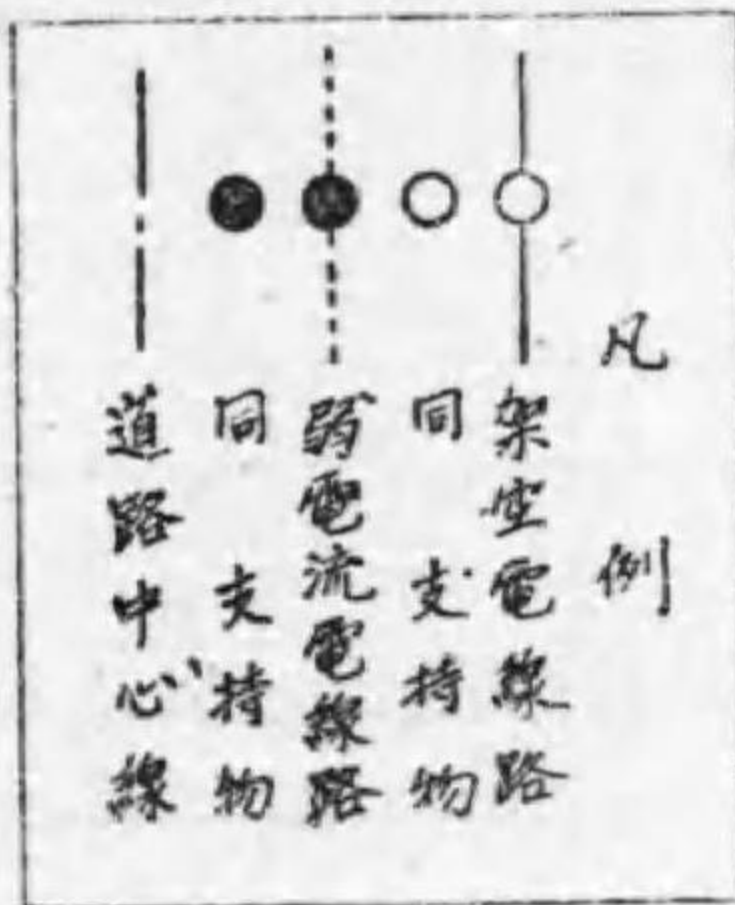 凡例
架空電線路
同支持物
弱電流電線路
同支持物
道路中心線